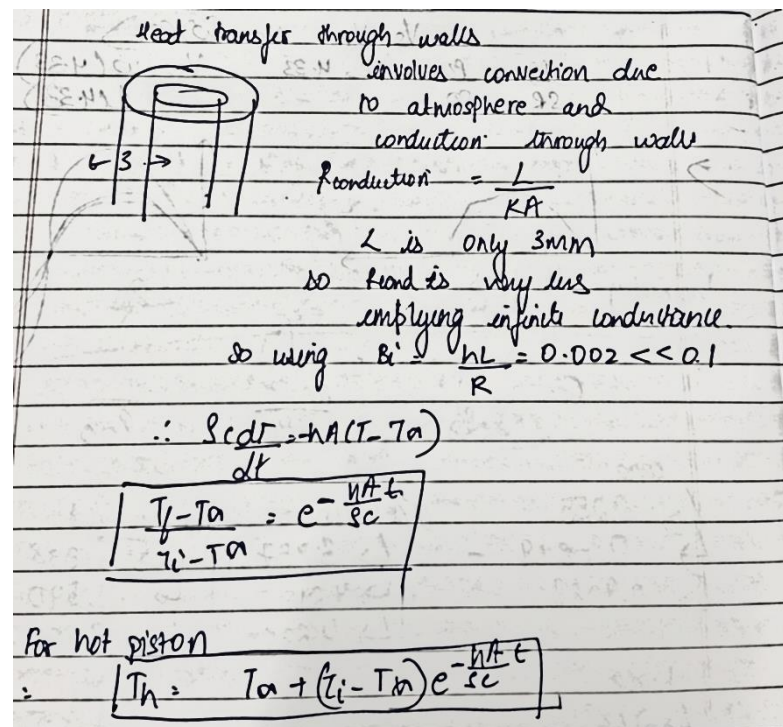 Heat transfer through walls
involves convection due
to atmosphere and
conduction through walls
← 3 →
Rconduction = L/KA
L is only 3mm
so Rcond is very less
implying infinite conductance.
so using Bi = hL/R = 0.002 << 0.1
∴ ρc dT/dt = -hA(T-Ta)
(Tf-Ta)/(Ti-Ta) = e^(-hAt/ρc)
For hot piston
: Th = Ta + (Ti-Ta)e^(-hAt/ρc)